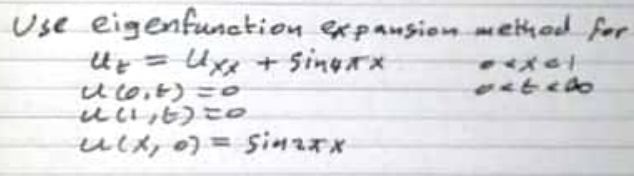 Use eigenfunction expansion method for
u_t = u_xx + sin4πx 0<x<1
u(0,t) = 0 0<t<∞
u(1,t) = 0
u(x, 0) = sin2πx